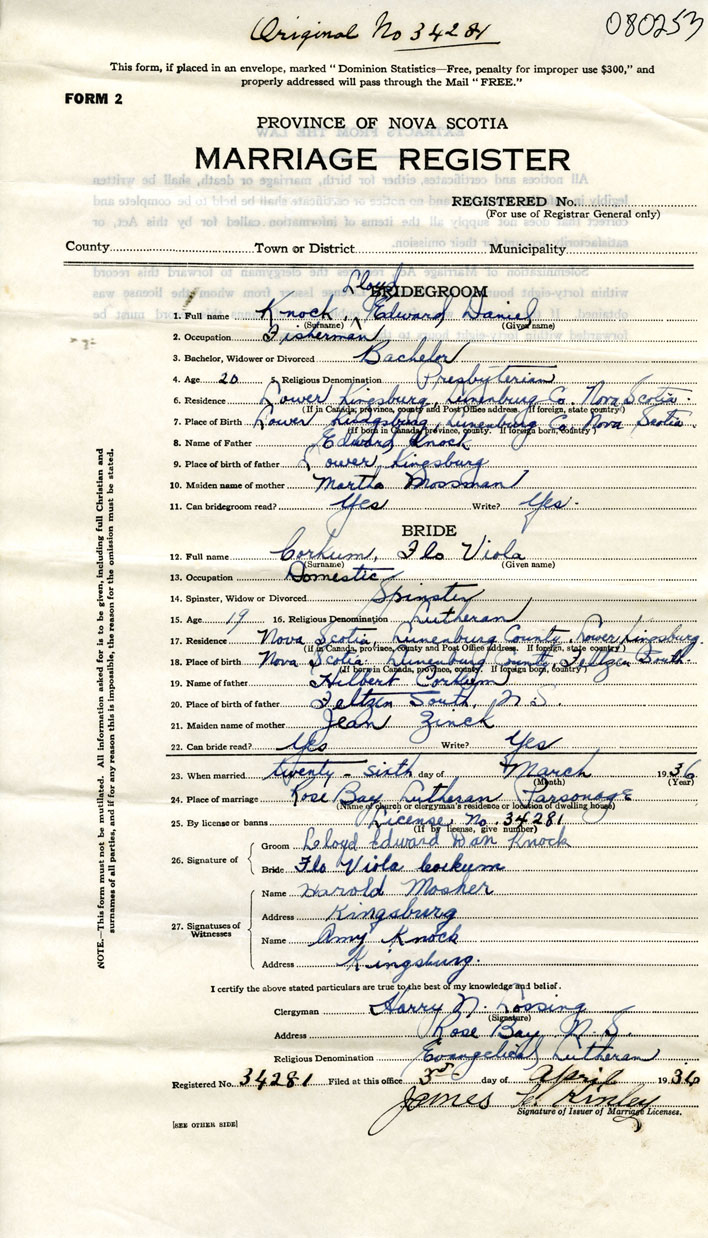 Original No 34281
080253
This form, if placed in an envelope, marked "Dominion Statistics—Free, penalty for improper use $300," and
properly addressed will pass through the Mail "FREE."
FORM 2
PROVINCE OF NOVA SCOTIA
MARRIAGE REGISTER
REGISTERED No.
(For use of Registrar General only)
County Town or District Municipality
Lloyd
BRIDEGROOM
1. Full name Knock, Edward Daniel
(Surname) (Given name)
2. Occupation Fisherman
3. Bachelor, Widower or Divorced Bachelor
4. Age 20 5. Religious Denomination Presbyterian
6. Residence Lower Kingsburg, Lunenburg Co. Nova Scotia.
(If in Canada, province, county and Post Office address. If foreign, state country)
7. Place of Birth Lower Kingsburg, Lunenburg Co. Nova Scotia.
(If born in Canada, province, county. If foreign born, country)
8. Name of Father Edward Knock
9. Place of birth of father Lower Kingsburg
10. Maiden name of mother Martha Mossman
11. Can bridegroom read? Yes Write? Yes.
BRIDE
12. Full name Corkum, Flo Viola
(Surname) (Given name)
13. Occupation Domestic
14. Spinster, Widow or Divorced Spinster
15. Age 19 16. Religious Denomination Lutheran
17. Residence Nova Scotia, Lunenburg County, Lower Kingsburg.
(If in Canada, province, county and Post Office address. If foreign, state country)
18. Place of birth Nova Scotia. Lunenburg County, Feltzen South.
(If born in Canada, province, county. If foreign born, country)
19. Name of father Hilbert Corkum
20. Place of birth of father Feltzen South, N.S.
21. Maiden name of mother Jean Zinck
22. Can bride read? Yes Write? Yes
23. When married twenty-sixth day of March 1936
(Month) (Year)
24. Place of marriage Rose Bay Lutheran Parsonage
(Name of church or clergyman's residence or location of dwelling house)
25. By license or banns License No. 34281
(If by license, give number)
26. Signature of
Groom Lloyd Edward Dan Knock
Bride Flo Viola Corkum
27. Signatures of Witnesses
Name Harold Mosher
Address Kingsburg
Name Amy Knock
Address Kingsburg.
I certify the above stated particulars are true to the best of my knowledge and belief.
Clergyman Harry N. Lossing
(Signature)
Address Rose Bay N.S.
Religious Denomination Evangelical Lutheran
Registered No. 34281 Filed at this office 3rd day of April 1936
James C. Kinley
Signature of Issuer of Marriage Licenses.
[SEE OTHER SIDE]
NOTE.—This form must not be mutilated. All information asked for is to be given, including full Christian and
surnames of all parties, and if for any reason this is impossible, the reason for the omission must be stated.